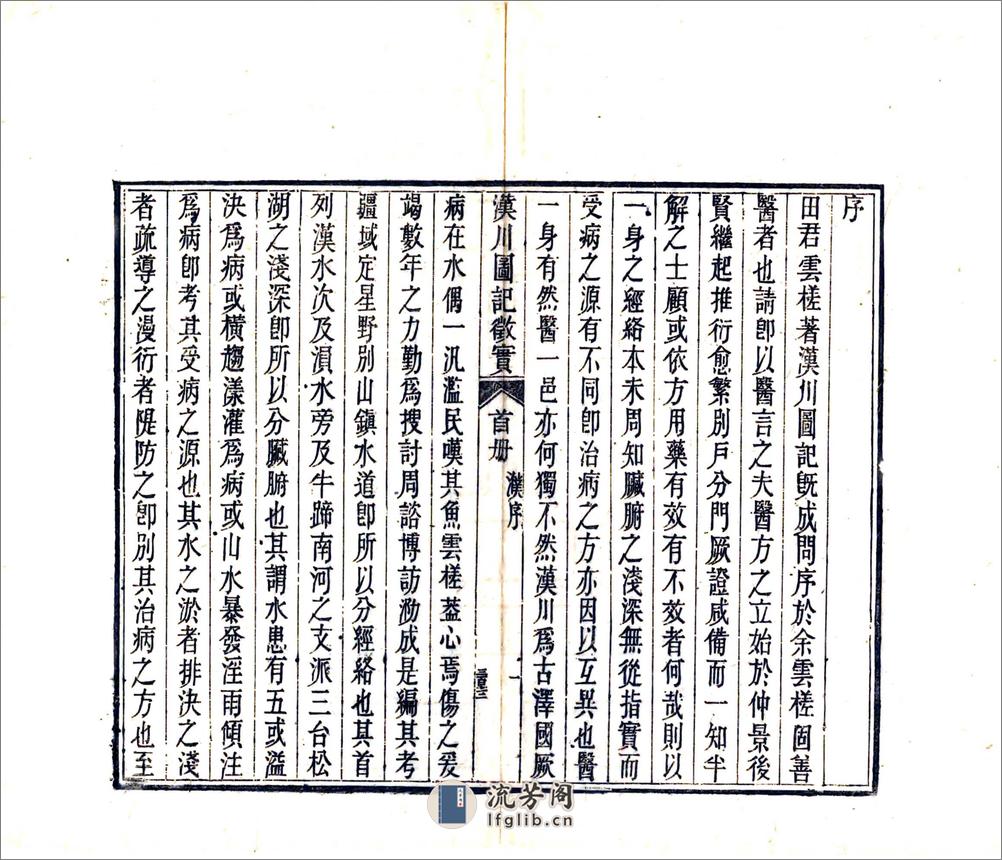 序
田君雲槎著漢川圖記旣成問序於余雲槎固善
醫者也請卽以醫言之夫醫方之立始於仲景後
賢繼起推衍愈繁別戶分門厥證咸備而一知半
解之士顧或依方用藥有效有不效者何哉則以
一身之經絡本未周知臟腑之淺深無從指實而
受病之源有不同卽治病之方亦因以互異也醫
一身有然醫一邑亦何獨不然漢川爲古澤國厥
漢川圖記徵實
首册
漢序
一
病在水偶一汎濫民嘆其魚雲槎蓋心焉傷之爰
竭數年之力勤爲搜討周諮博訪泐成是編其考
疆域定星野別山鎮水道卽所以分經絡也其首
列漢水次及溳水旁及牛蹄南河之支派三台松
湖之淺深卽所以分臟腑也其謂水患有五或溢
決爲病或橫趨漾灌爲病或山水暴發淫雨傾注
爲病卽考其受病之源也其水之淤者排決之淺
者疏導之漫衍者隄防之卽別其治病之方也至
流芳阁
lfglib.cn